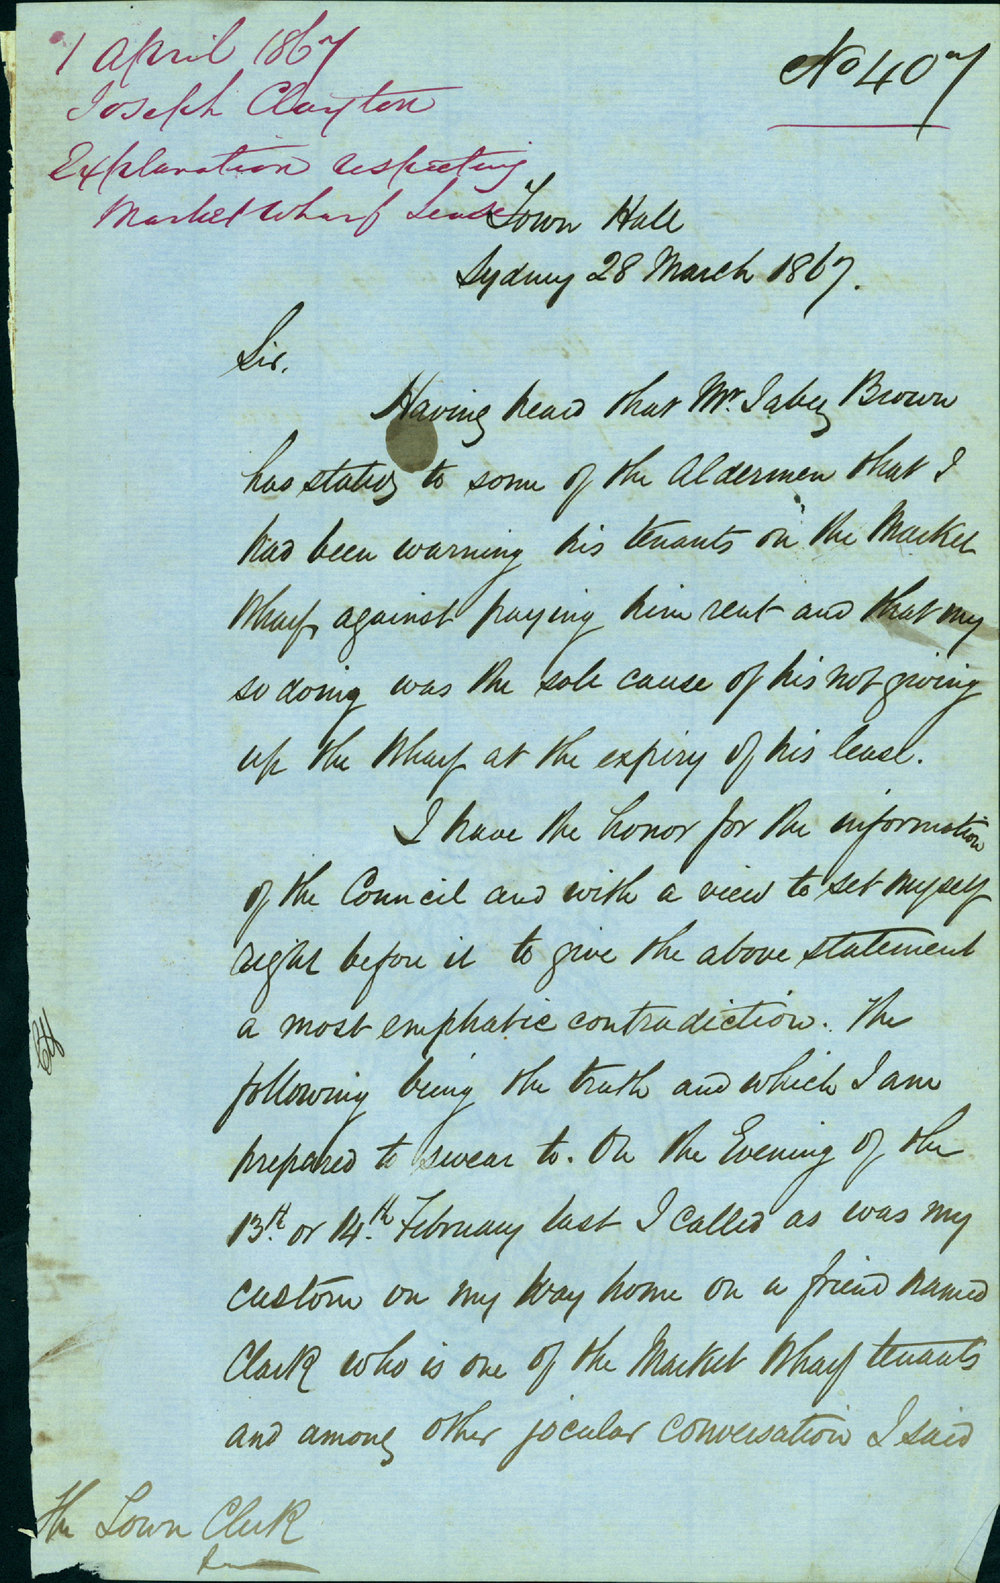 1 April 1867
Joseph Clayton
Explanation respecting
Market Wharf Lease
No 407
Town Hall
Sydney 28 March 1867.
Sir.
Having heard that Mr. Jabez Brown
has stated to some of the Aldermen that I
had been warning his tenants on the Market
Wharf against paying him rent and that my
so doing was the sole cause of his not giving
up the Wharf at the expiry of his lease.
I have the honor for the information
of the Council and with a view to set myself
right before it to give the above statement
a most emphatic contradiction. The
following being the truth and which I am
prepared to swear to. On the Evening of the
13th. or 14th. February last I called as was my
custom on my way home on a friend named
Clark who is one of the Market Wharf tenants
and among other jocular conversation I said
The Town Clerk